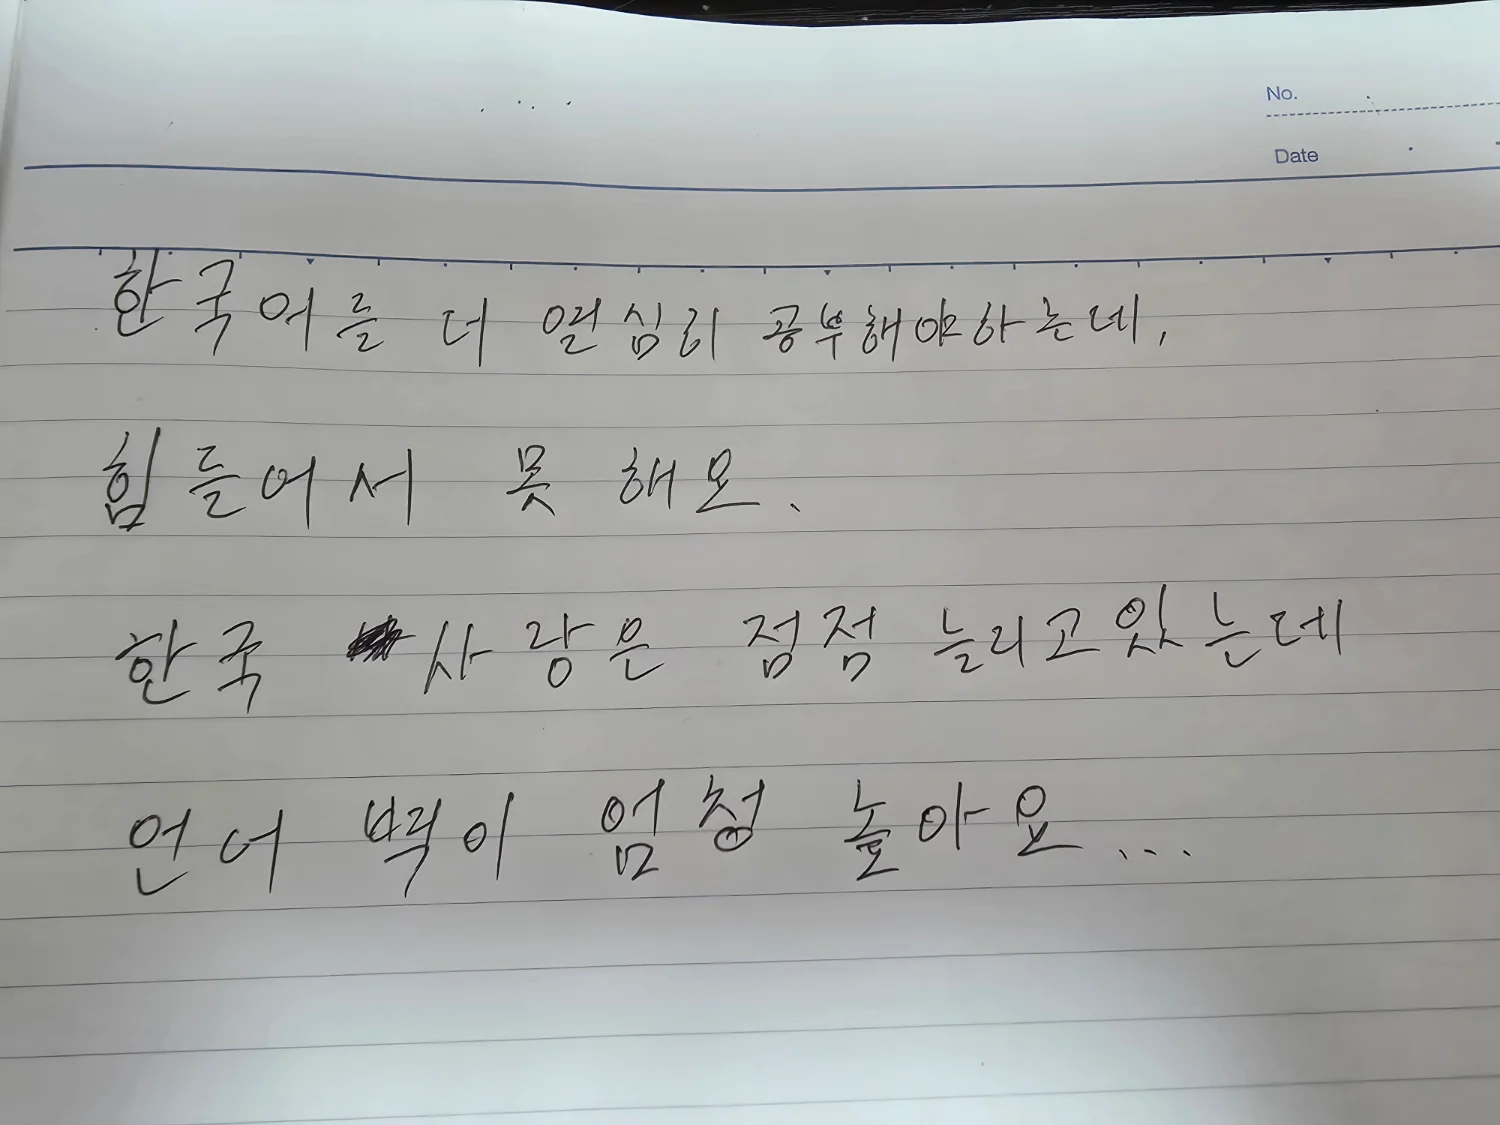 No.
Date
한국어를 더 열심리 공부해야하는데,
힘들어서 못 해요.
한국 사랑은 점점 늘리고있는데
언어 벽이 엄청 높아요...